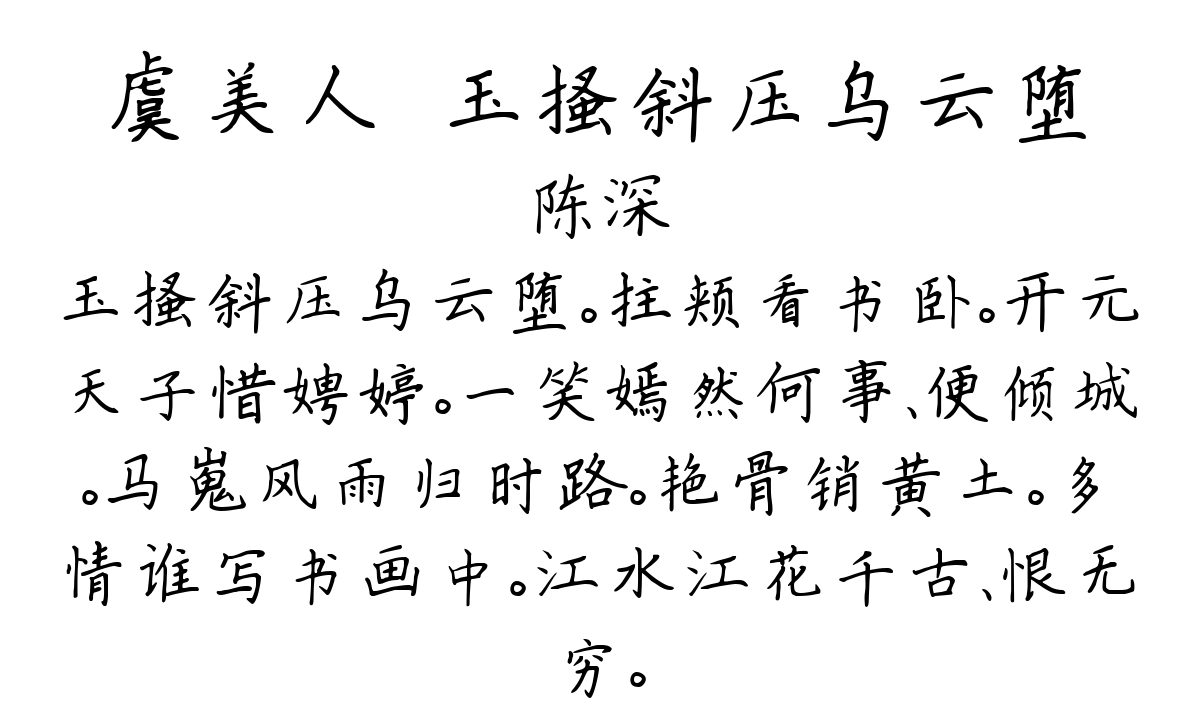 虞美人 玉搔斜压乌云堕
陈深
玉搔斜压乌云堕。拄颊看书卧。开元
天子惜娉婷。一笑嫣然何事、便倾城
。马嵬风雨归时路。艳骨销黄土。多
情谁写书画中。江水江花千古、恨无
穷。